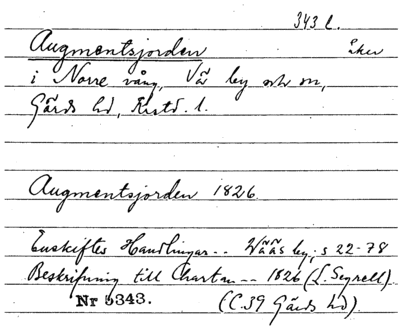 343 l.
Augmentsjorden åker
i Norre vång, Vä by och sn,
Gärds hd, Kristd. l.
Augmentsjorden 1826.
Enskiftes Handlingar -- Wääs by; s 22-78
Beskrifning till Chartan -- 1826 (L. Segrell).
Nr 5343. (C. 39 Gärds hd)